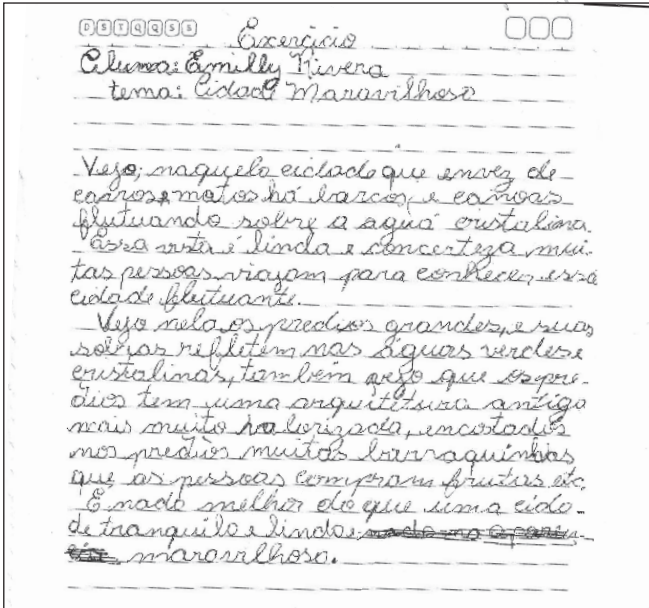 D S T Q Q S S
Exercício
Aluna: Emilly Rivera
tema: Cidade Maravilhosa
Vejo, naquela cidade que envez de
carros e motos há barcos, e canoas
flutuando sobre a aguá cristalina.
Essa vista é linda e concerteza mui-
tas pessoas viajam para conhecer essa
cidade flutuante.
Vejo nela os predios grandes, e suas
sobras refletem nas águas verdes e
cristalinas, tambêm vejo que os pre-
dios tem uma arquitetura antiga
mais muito valorizada, encostados
nos predios muitas barraquinhas
que as pessoas compram frutas etc.
E nada melhor do que uma cida-
de tranquila e linda e
maravilhosa.